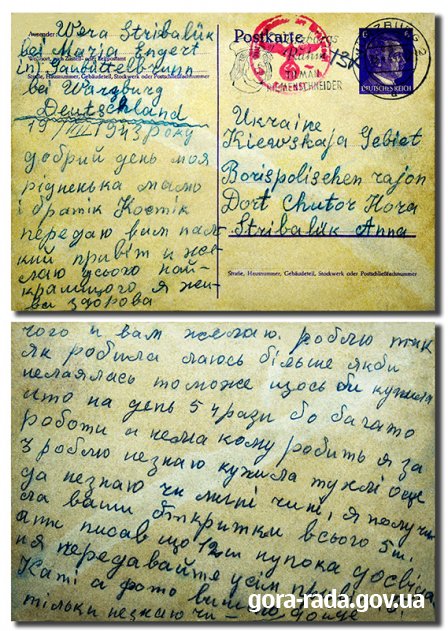 Absender: Wera Stribalük
bei Maria Engert
in Gaubüttelbrunn
Straße, Hausnummer, Gebäudeteil, Stockwerk
bei Würzburg
Deutschland
19/VIII 1943 року
добрий день моя
рідненька мамо
і братік Костік
передаю вим пал
кий привіт и же
лаю усього най-
кращого, я жи-
ва здорова
Postkarte
WÜRZBURG 2
TILMAN
RIEMENSCHNEIDER
6
DEUTSCHES REICH
Ukraine
Kiewskaja Gebiet
Borispolischen rajon
Dort Chutor Hora
Stribalük Anna
Straße, Hausnummer, Gebäudeteil, Stockwerk oder Postschließfachnummer
чого и вам желаю. роблю так
як робила лаюсь більше якби
нелаялась то може щось би купила
што на день 5 чрази бо багато
роботи и нема кому робить я за
роблю незнаю купила туклі още
да незнаю чи мині чи ні, я получи
ла ваши откритки всього 5 ш.
писав що 12 ш
ня передавайте усім
Каті а фото
тільки незнаю чи
gora-rada.gov.ua